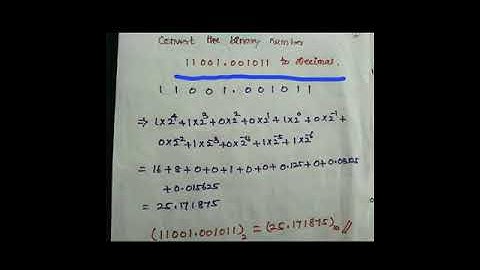 Convert the binary number
11001.001011 to decimal.
1 1 0 0 1 . 0 0 1 0 1 1
⇒ 1×2⁴+1×2³+0×2²+0×2¹+1×2⁰+0×2⁻¹+
0×2⁻²+1×2⁻³+0×2⁻⁴+1×2⁻⁵+1×2⁻⁶
= 16+8+0+0+1+0+0+0.125+0+0.03125
+0.015625
= 25.171875
(11001.001011)₂ = (25.171875)₁₀ //